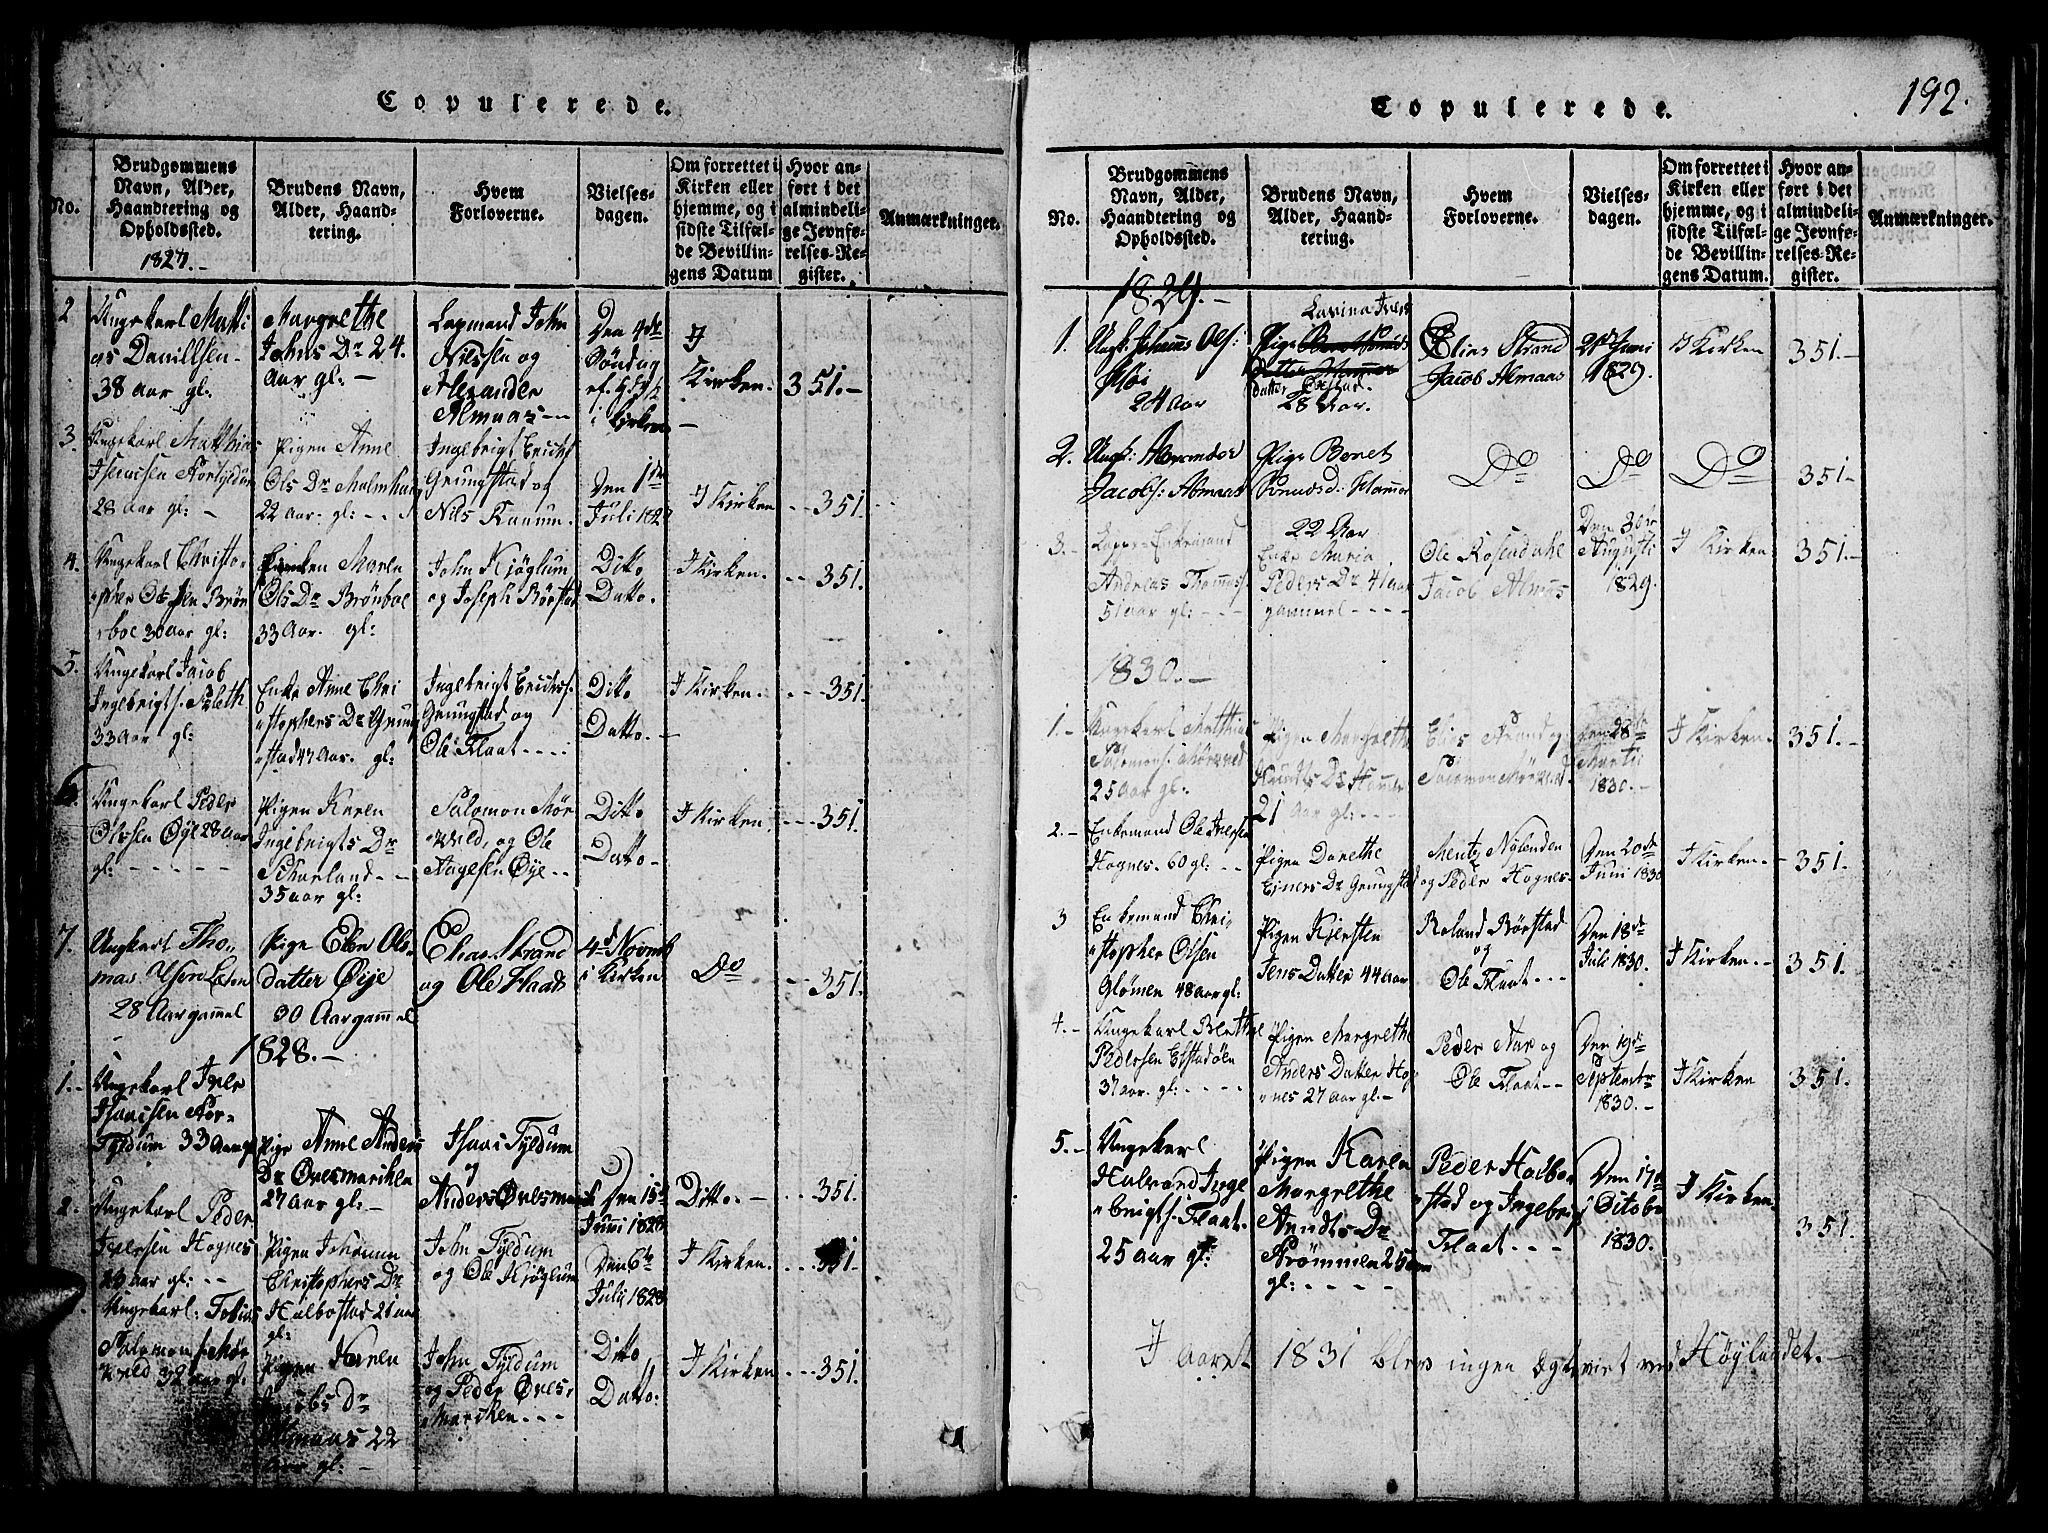 Copulerede.
No.
Brudgommens
Navn, Alder,
Haandtering og
Opholdssted.
Brudens Navn,
Alder, Haand-
tering.
Hvem
Forloverne.
Vielses-
dagen.
Om forrettet i
Kirken eller
hjemme, og i
sidste Tilfæl-
de Bevillin-
gens Datum
Hvor an-
ført i det
almindeli-
ge Jevnfø-
relses-Re-
gister.
Anmærkninger.
1827.-
2
Ungekarl Matti
as Daniellsen-
38 aar gl.
Margrethe
Johns Dr 24.
aar gl:-
Lapmand John
Nilssen og
Alexander
Almaas--
Den 4de
Søndag
i Kirken
I
Kirken.
351.-
3.
Ungekarl Matthias
Isaacsen Nortyldum
28 aar gl: -
Pigen Anne
Ols Dr
22 aar. gl:--
Ingebrigt Erichs.
Grungstad og
Nils
Den 1te
Juli 1827
I Kirken
--351.
4.
Ungekarl Christo-
pher Olssen Brøn-
boe 30 aar gl:
Maren
Ols Dr Brønboe
33 Aar. gl:
John Kjøglum
og Joseph Børstad
Ditto
Datto.
I Kirken.
--351.
5.
Ungekarl Jacob
Ingebrigts.
33 Aar gl:
Enke Anne Chri
"stophers Dr Grung
"stad 47 Aar. gl:
Ingebrigt Erichs.
Grungstad og
Ole Flaat....
Ditto
Datto.-
I Kirken.
---351
6.
Ungekarl Peder
Olssen Øye 28 aar
gl:-----
Pigen Karen
Ingebrigts Dr
35 aar gl:
Salomon Mør
"kved, og Ole
Aagesen Øye--
Ditto
Datto-
I Kirken
---351.
7.
Ungkarl Tho-
mas
28 Aar gammel
Pige Ols-
datter Øye
30 Aar gammel
Elias Strand
og Ole Flaadt
4de Novemb
i Kirken
Do
--351.
1828.-
1.-
Ungekarl Iver
Isaacsen Nor-
Tyldum 33 aar gl
Pige Anne Anders
Dr Øvesmarken
27 aar gl:-
Isaac Tyldum
og
Anders Øvesmark
Den 15de
Juni 1828
Ditto.-
---351.
2.
Ungekarl Peder
Iversen Hognes
23 aar gl:--
Pigen Johanna
Christophers Dr
Halbostad 21 aar
gl:
John Tyldum
og Ole Kjøglum
Den 6te
Juli 1828
I Kirken.
...351
Ungekarl: Tobias
Salomons. Mør
kved 32 aar gl.
Pigen Karen
Jacobs Dr
Almaas 22
aar gl:-
John Tyldum
og Peder Øves-
marken---
Ditto
Datto.
I Kirken
---351.
Copulerede.
192.
No.
Brudgommens
Navn, Alder,
Haandtering og
Opholdssted.
Brudens Navn,
Alder, Haand-
tering.
Hvem
Forloverne.
Vielses-
dagen.
Om forrettet i
Kirken eller
hjemme, og i
sidste Tilfæl-
de Bevillin-
gens Datum.
Hvor an-
ført i det
almindeli-
ge Jevnfø-
relses-Re-
gister.
Anmærkninger.
1829.-
1.
Ungk: Johannes Ols:
Fløi
24 Aar
Lavina Ivers
Pige
datter Øxstad.
28 Aar.
Elias Strand
Jacob Almaas
21de Juni
1829.
I Kirken
351.-
2.
Ungk:
Jacobs: Almaas
Pige Beret
Svendsd: Hammer
22 Aar
Do
Do
Do
351-
3.-
Lappe-Enkemand
Andreas Thomas.
51 aar gl:---
Enke Maria
Peders Dr 41 aar
gammel----
Ole Rosendahl
Jacob Almaas
Den 30te
Augusti
1829.
I Kirken
351.-
1830.-
1.-
Ungekarl Matthias
Salomons. Mørkved
25 Aar gl:
Pigen Margrethe
Dr Hammer
21 Aar gl:---
Elias Strand og
Salomon Mørkved
Den 28de
Martii
1830.-
I Kirken.
351.-
2.-
Enkemand Ole Iversen
Hognes. 60 gl:--
Pigen Dorethe
Einers Dr Grungstad
Mentz Nylenden
og Peder Hognes-
Den 20de
Juni 1830
I Kirken.-
351.-
3
Enkemand Chri-
"stopher Olsen
Glømen 48 aar gl:
Pigen Kjersten
Jens Datter 44 aar
Roland Børstad
og
Ole Flaat---
Den 18de
Juli 1830.
I Kirken.-
351.
4.-
Ungekarl
Pedersen
37 aar. gl:----
Pigen Margrethe
Anders Datter Hog
"nes 27 aar gl.-
Peder Aar og
Ole Flaat--
Den 19de
Septembr
1830.-
I Kirken
351.
5.-
Ungekarl
Halvard Inge
"brigts. Flaat.
25 aar gl:
Pigen Karen
Margrethe
Arndts Dr
Strømmen 25 aar
gl:-----
Peder Halbo
"stad og Ingebrigt
Flaat---
Den 17de
Octobr
1830.
I Kirken
351.
I aaret 1831 blev ingen Ægteviet ved Høylandet.-